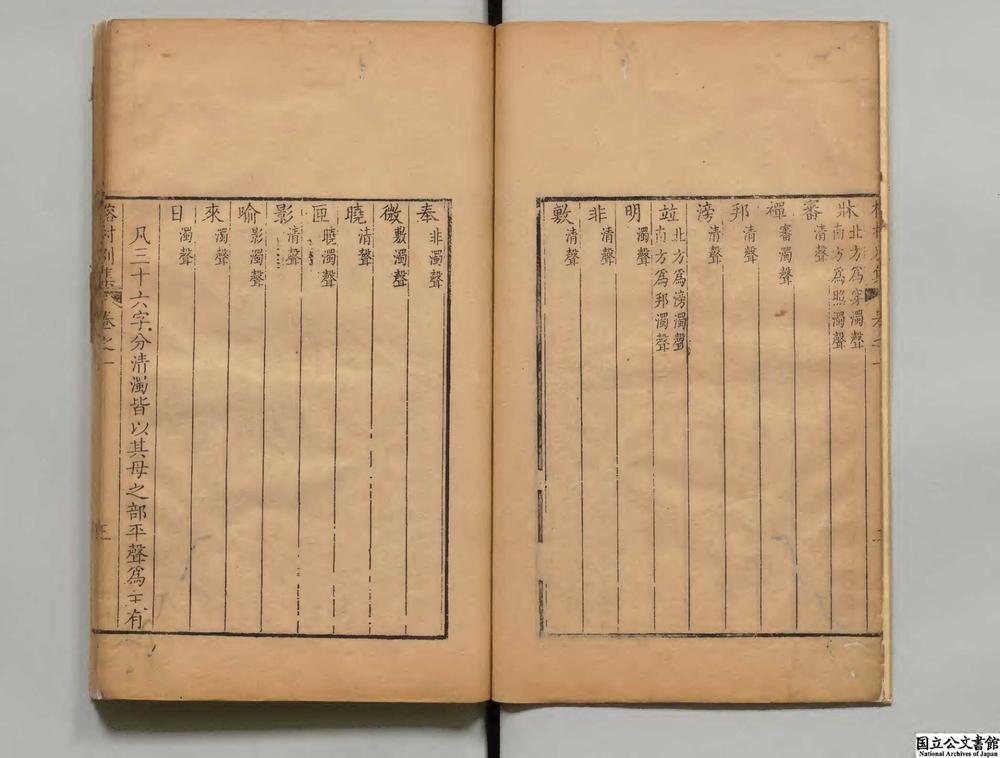 牀 北方爲穿濁聲
南方爲照濁聲
審 清聲
禪 審濁聲
邦 清聲
滂 清聲
竝 北方爲滂濁聲
南方爲邦濁聲
明 濁聲
非 清聲
敷 清聲
奉 非濁聲
微 敷濁聲
曉 清聲
匣 曉濁聲
影 清聲
喻 影濁聲
來 濁聲
日 濁聲
凡三十六字分清濁皆以其母之部平聲爲主有
榕村別集 卷之一 三
国立公文書館
National Archives of Japan